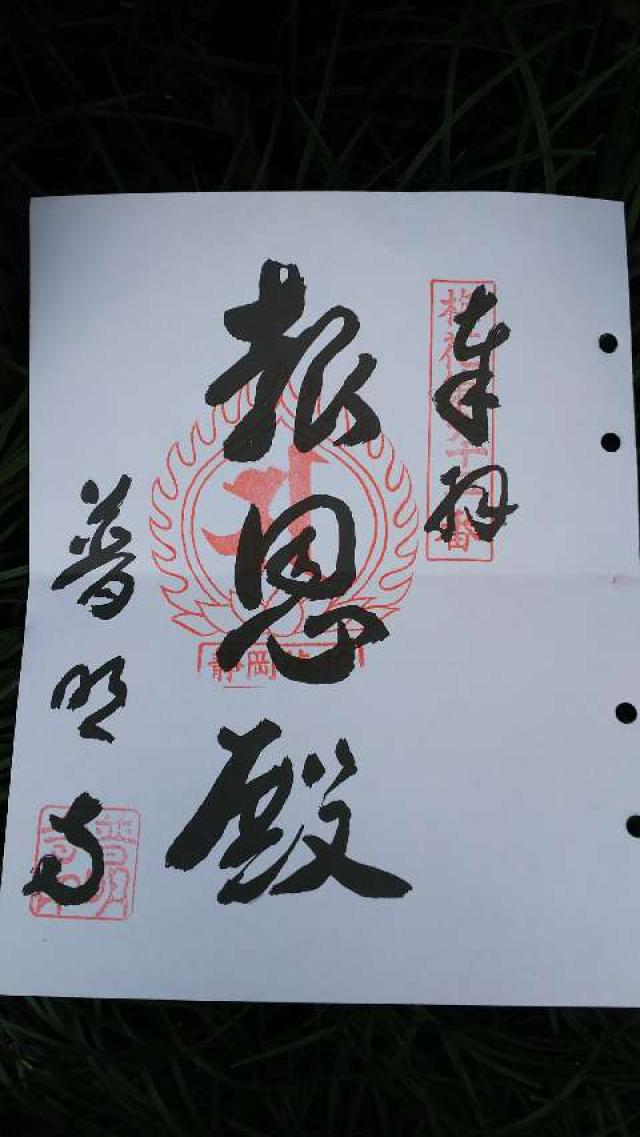 奉拝
報恩殿
静岡
普明寺
普明